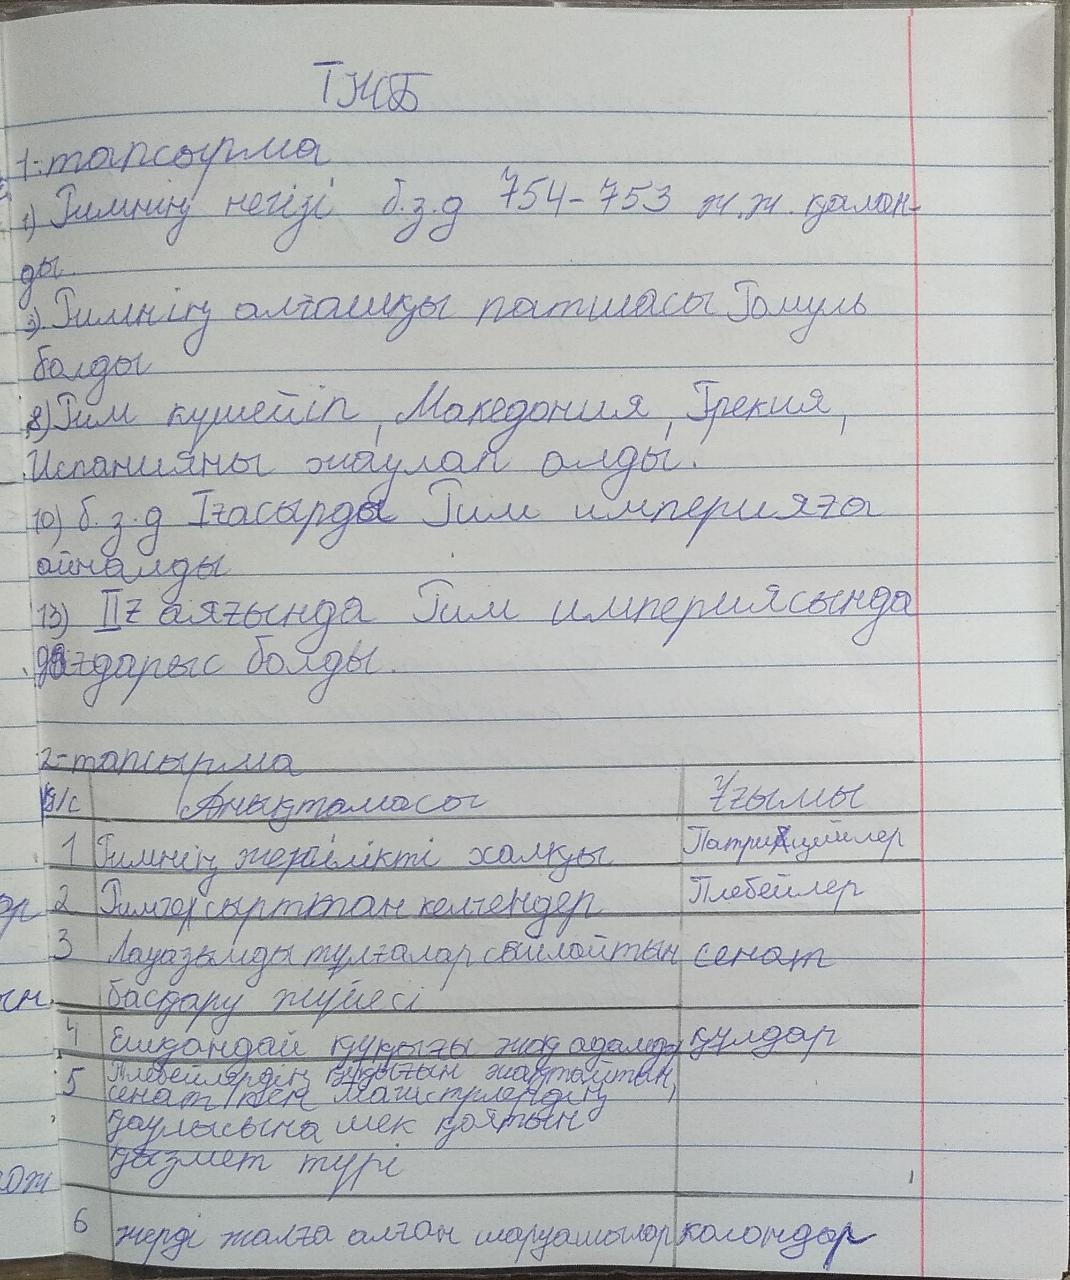 ТЖБ
1-тапсырма
1) Римнің негізі б.з.д 754-753 ж.ж. қалан-
ды.
2) Римнің алғашқы патшасы Ромуль
болды
8) Рим күшейіп, Македония, Грекия,
Испанияны жаулап алды.
10) б.з.д I ғасырда Рим империяға
айналды
13) II ғ аяғында Рим империясында
дағдарыс болды.
2-тапсырма
Р/с Анықтамасы Ұғымы
1 Римнің жергілікті халқы Патрицийлер
2 Римге сырттан келгендер Плебейлер
3 Лауазымды тұлғалар сайлайтын сенат
басқару жүйесі
4 Ешқандай құқығы жоқ адамдар құлдар
5 Плебейлердің құқығын жақтайтын,
сенат пен магистрлердің
қаулысына шек қоятын
қызмет түрі
6 жерді жалға алған шаруашылар колондар